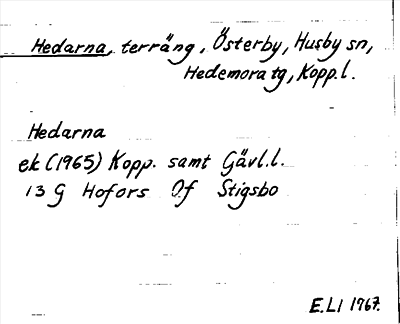 Hedarna, terräng, Österby, Husby sn,
Hedemora tg, Kopp.l.
Hedarna
ek (1965) Kopp. samt Gävl.l.
13 G Hofors 0f Stigsbo
E.Ll 1967.